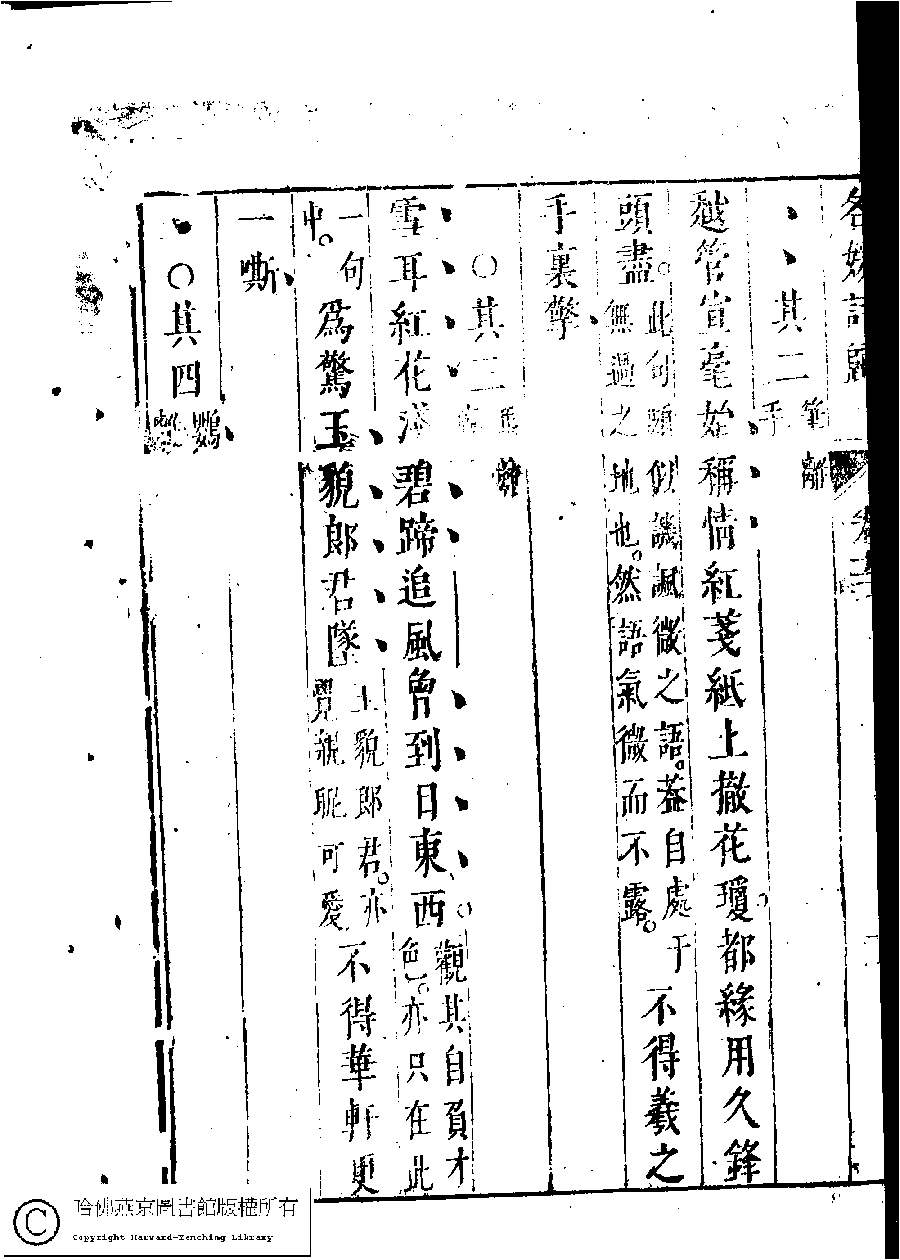 名媛詩歸
其二 筆離手
越管宣毫始稱情紅箋紙上撒花瓊。都緣用久鋒
頭盡。此句頭似譏諷微之語。蓋自處于無過之地也。然語氣微而不露。不得羲之
手裏擎
○其三
雪耳紅花淺碧蹄追風曾到日東西。觀其自負才色。亦只在此
一句中。爲驚玉貌郎君墜玉貌郎君。亦覺親昵可愛不得華軒更
一嘶
○其四 鸚
哈佛燕京圖書館版權所有
Copyright Harvard-Yenching Library